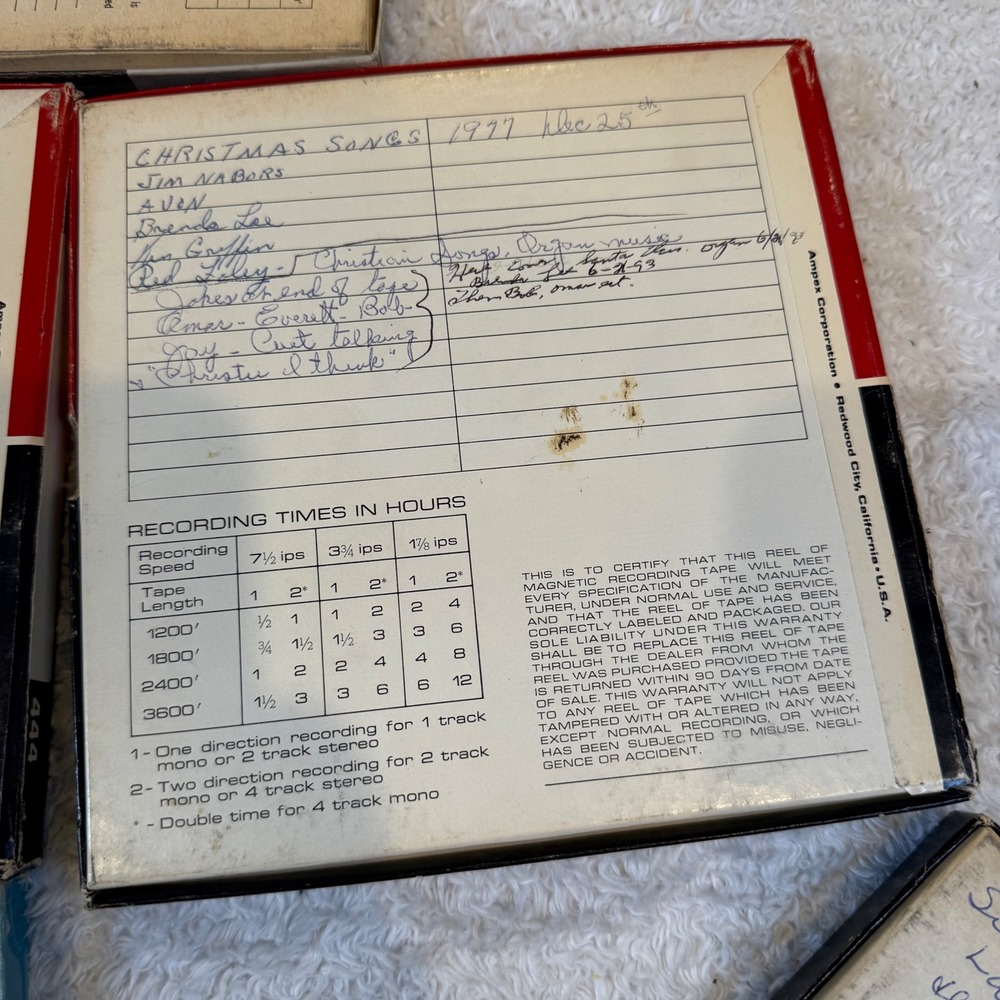 CHRISTMAS SONGS 1977 Dec 25th
JIM NABORS
AVON
Brenda Lee
Griffin
Christian Songs, Organ music
Jokes at end of tape
Omar - Everett - Bob -
Jay - Curt talking
"Christie I think"
Santa organ
Brenda Lee 6- -93
Then Bob, omar ect.
RECORDING TIMES IN HOURS
Recording Speed 7½ ips 3¾ ips 1⅞ ips
Tape Length 1 2* 1 2* 1 2*
1200' ½ 1 1 2 2 4
1800' ¾ 1½ 1½ 3 3 6
2400' 1 2 2 4 4 8
3600' 1½ 3 3 6 6 12
1 - One direction recording for 1 track
mono or 2 track stereo
2 - Two direction recording for 2 track
mono or 4 track stereo
* - Double time for 4 track mono
THIS IS TO CERTIFY THAT THIS REEL OF
MAGNETIC RECORDING TAPE WILL MEET
EVERY SPECIFICATION OF THE MANUFAC-
TURER, UNDER NORMAL USE AND SERVICE,
AND THAT THE REEL OF TAPE HAS BEEN
CORRECTLY LABELED AND PACKAGED. OUR
SOLE LIABILITY UNDER THIS WARRANTY
SHALL BE TO REPLACE THIS REEL OF TAPE
THROUGH THE DEALER FROM WHOM THE
REEL WAS PURCHASED PROVIDED THE TAPE
IS RETURNED WITHIN 90 DAYS FROM DATE
OF SALE. THIS WARRANTY WILL NOT APPLY
TO ANY REEL OF TAPE WHICH HAS BEEN
TAMPERED WITH OR ALTERED IN ANY WAY,
EXCEPT NORMAL RECORDING, OR WHICH
HAS BEEN SUBJECTED TO MISUSE, NEGLI-
GENCE OR ACCIDENT.
Ampex Corporation • Redwood City, California • U.S.A.
444